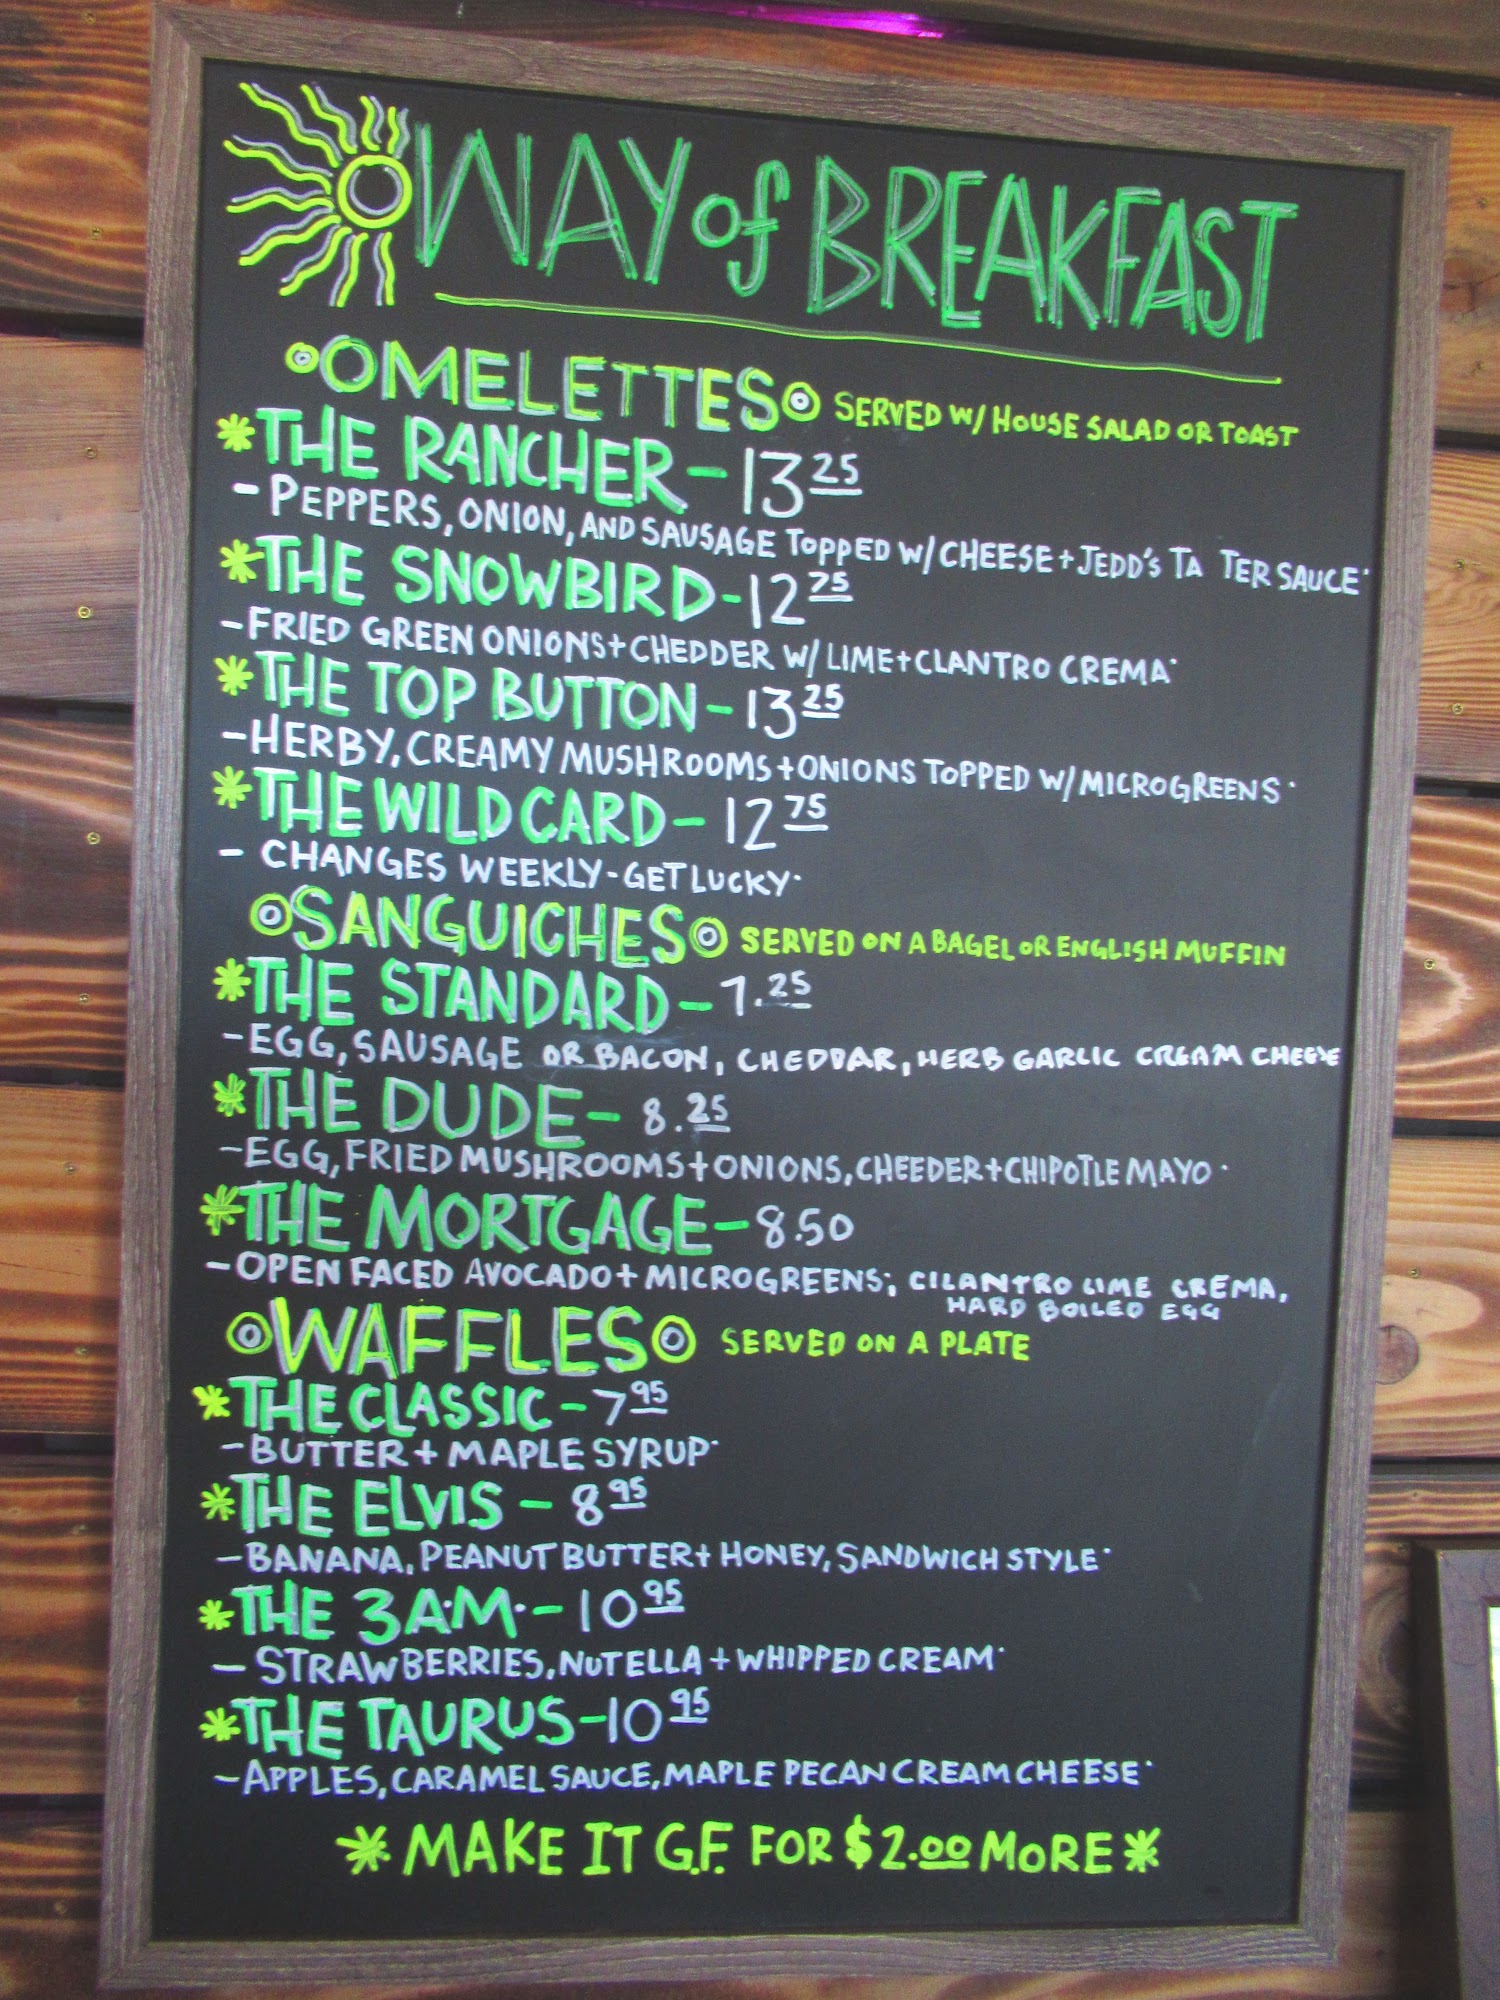 WAY of BREAKFAST
OMELETTES SERVED W/ HOUSE SALAD OR TOAST
* THE RANCHER - 13 25
- PEPPERS, ONION, AND SAUSAGE TOPPED W/ CHEESE + JEDD'S TA TER SAUCE.
* THE SNOWBIRD - 12 75
- FRIED GREEN ONIONS + CHEDDER W/ LIME + CLANTRO CREMA.
* THE TOP BUTTON - 13 25
- HERBY, CREAMY MUSHROOMS + ONIONS TOPPED W/ MICROGREENS.
* THE WILD CARD - 12 75
- CHANGES WEEKLY - GET LUCKY.
SANGUICHES SERVED ON A BAGEL OR ENGLISH MUFFIN
* THE STANDARD - 7.25
- EGG, SAUSAGE OR BACON, CHEDDAR, HERB GARLIC CREAM CHEESE
* THE DUDE - 8.25
- EGG, FRIED MUSHROOMS + ONIONS, CHEEDER + CHIPOTLE MAYO.
* THE MORTGAGE - 8.50
- OPEN FACED AVOCADO + MICROGREENS; CILANTRO LIME CREMA,
HARD BOILED EGG
WAFFLES SERVED ON A PLATE
* THE CLASSIC - 7 95
- BUTTER + MAPLE SYRUP.
* THE ELVIS - 8 95
- BANANA, PEANUT BUTTER + HONEY, SANDWICH STYLE.
* THE 3 A.M. - 10 95
- STRAWBERRIES, NUTELLA + WHIPPED CREAM.
* THE TAURUS - 10 95
- APPLES, CARAMEL SAUCE, MAPLE PECAN CREAM CHEESE.
* MAKE IT G.F. FOR $2.00 MORE *